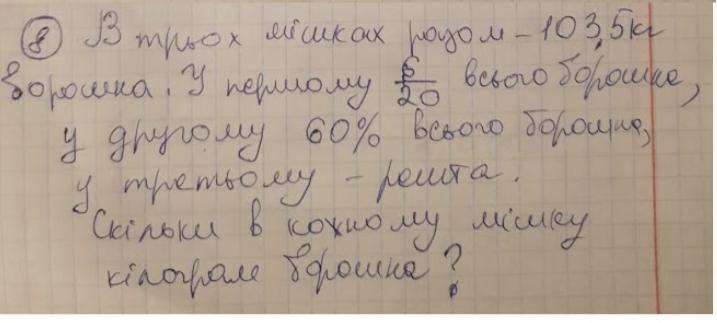 ⑧ В трьох мішках разом - 103,5кг
борошна. У першому 6/20 всього борошна,
у другому 60% всього борошна,
у третьому - решта.
Скільки в кожному мішку
кілограм борошна?